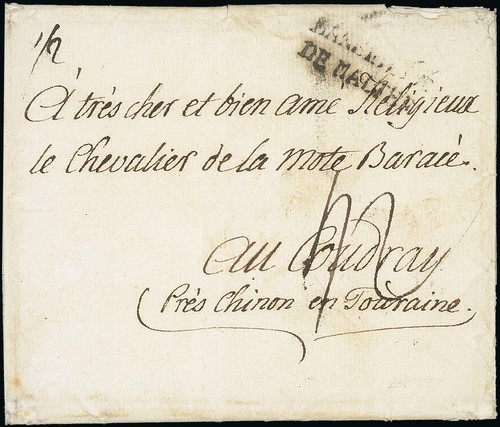 1/2
DE MALTHE
A trés cher et bien amé Religieux
le Chevalier de la Mote Baracé.
12
au Coudray
Prés Chinon en Touraine.